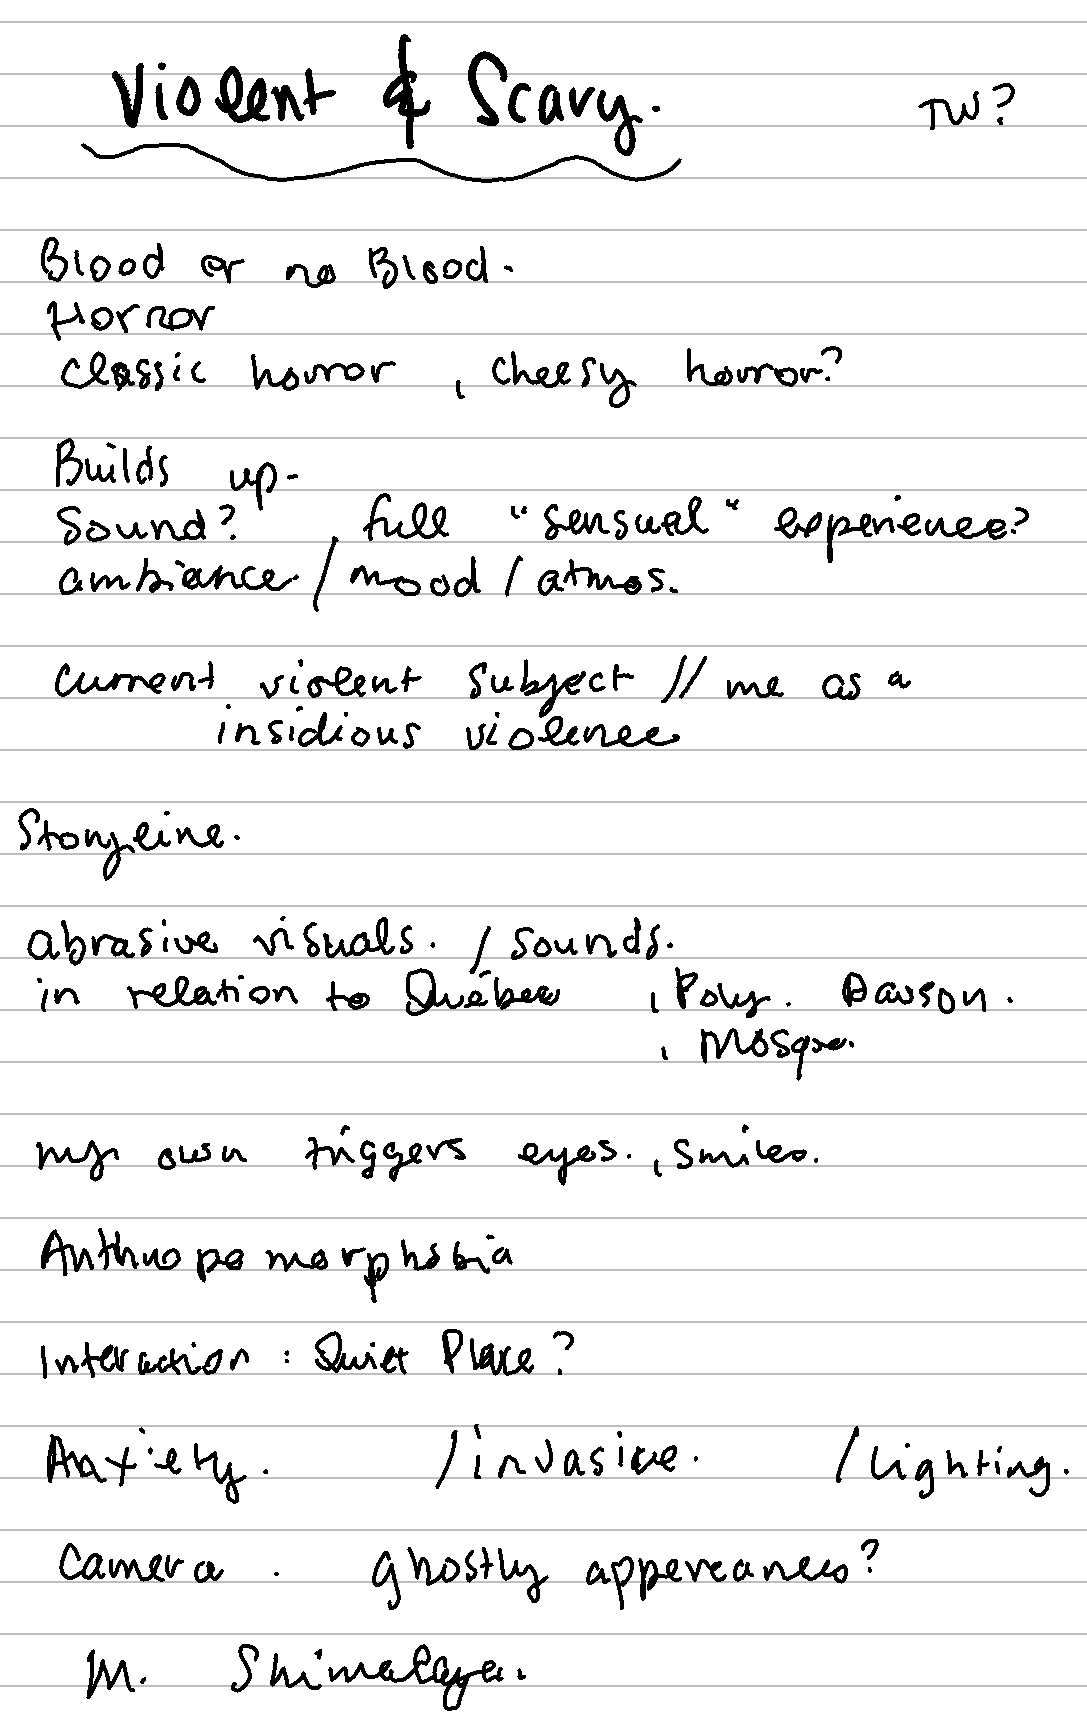 Violent & Scary. TW?
Blood or no Blood.
Horror
Classic horror, cheesy horror?
Builds up-
Sound? full "sensual" experience?
ambiance / mood / atmos.
Current violent subject // me as a
insidious violence
Storyline.
abrasive visuals. / sounds.
in relation to Québec , Poly. Dawson.
, Mosque.
my own triggers eyes. , smiles.
Anthropomorphobia
Interaction : Quiet Place?
Anxiety. /invasive. /Lighting.
Camera . Ghostly appereances?
M. Shimalaya.